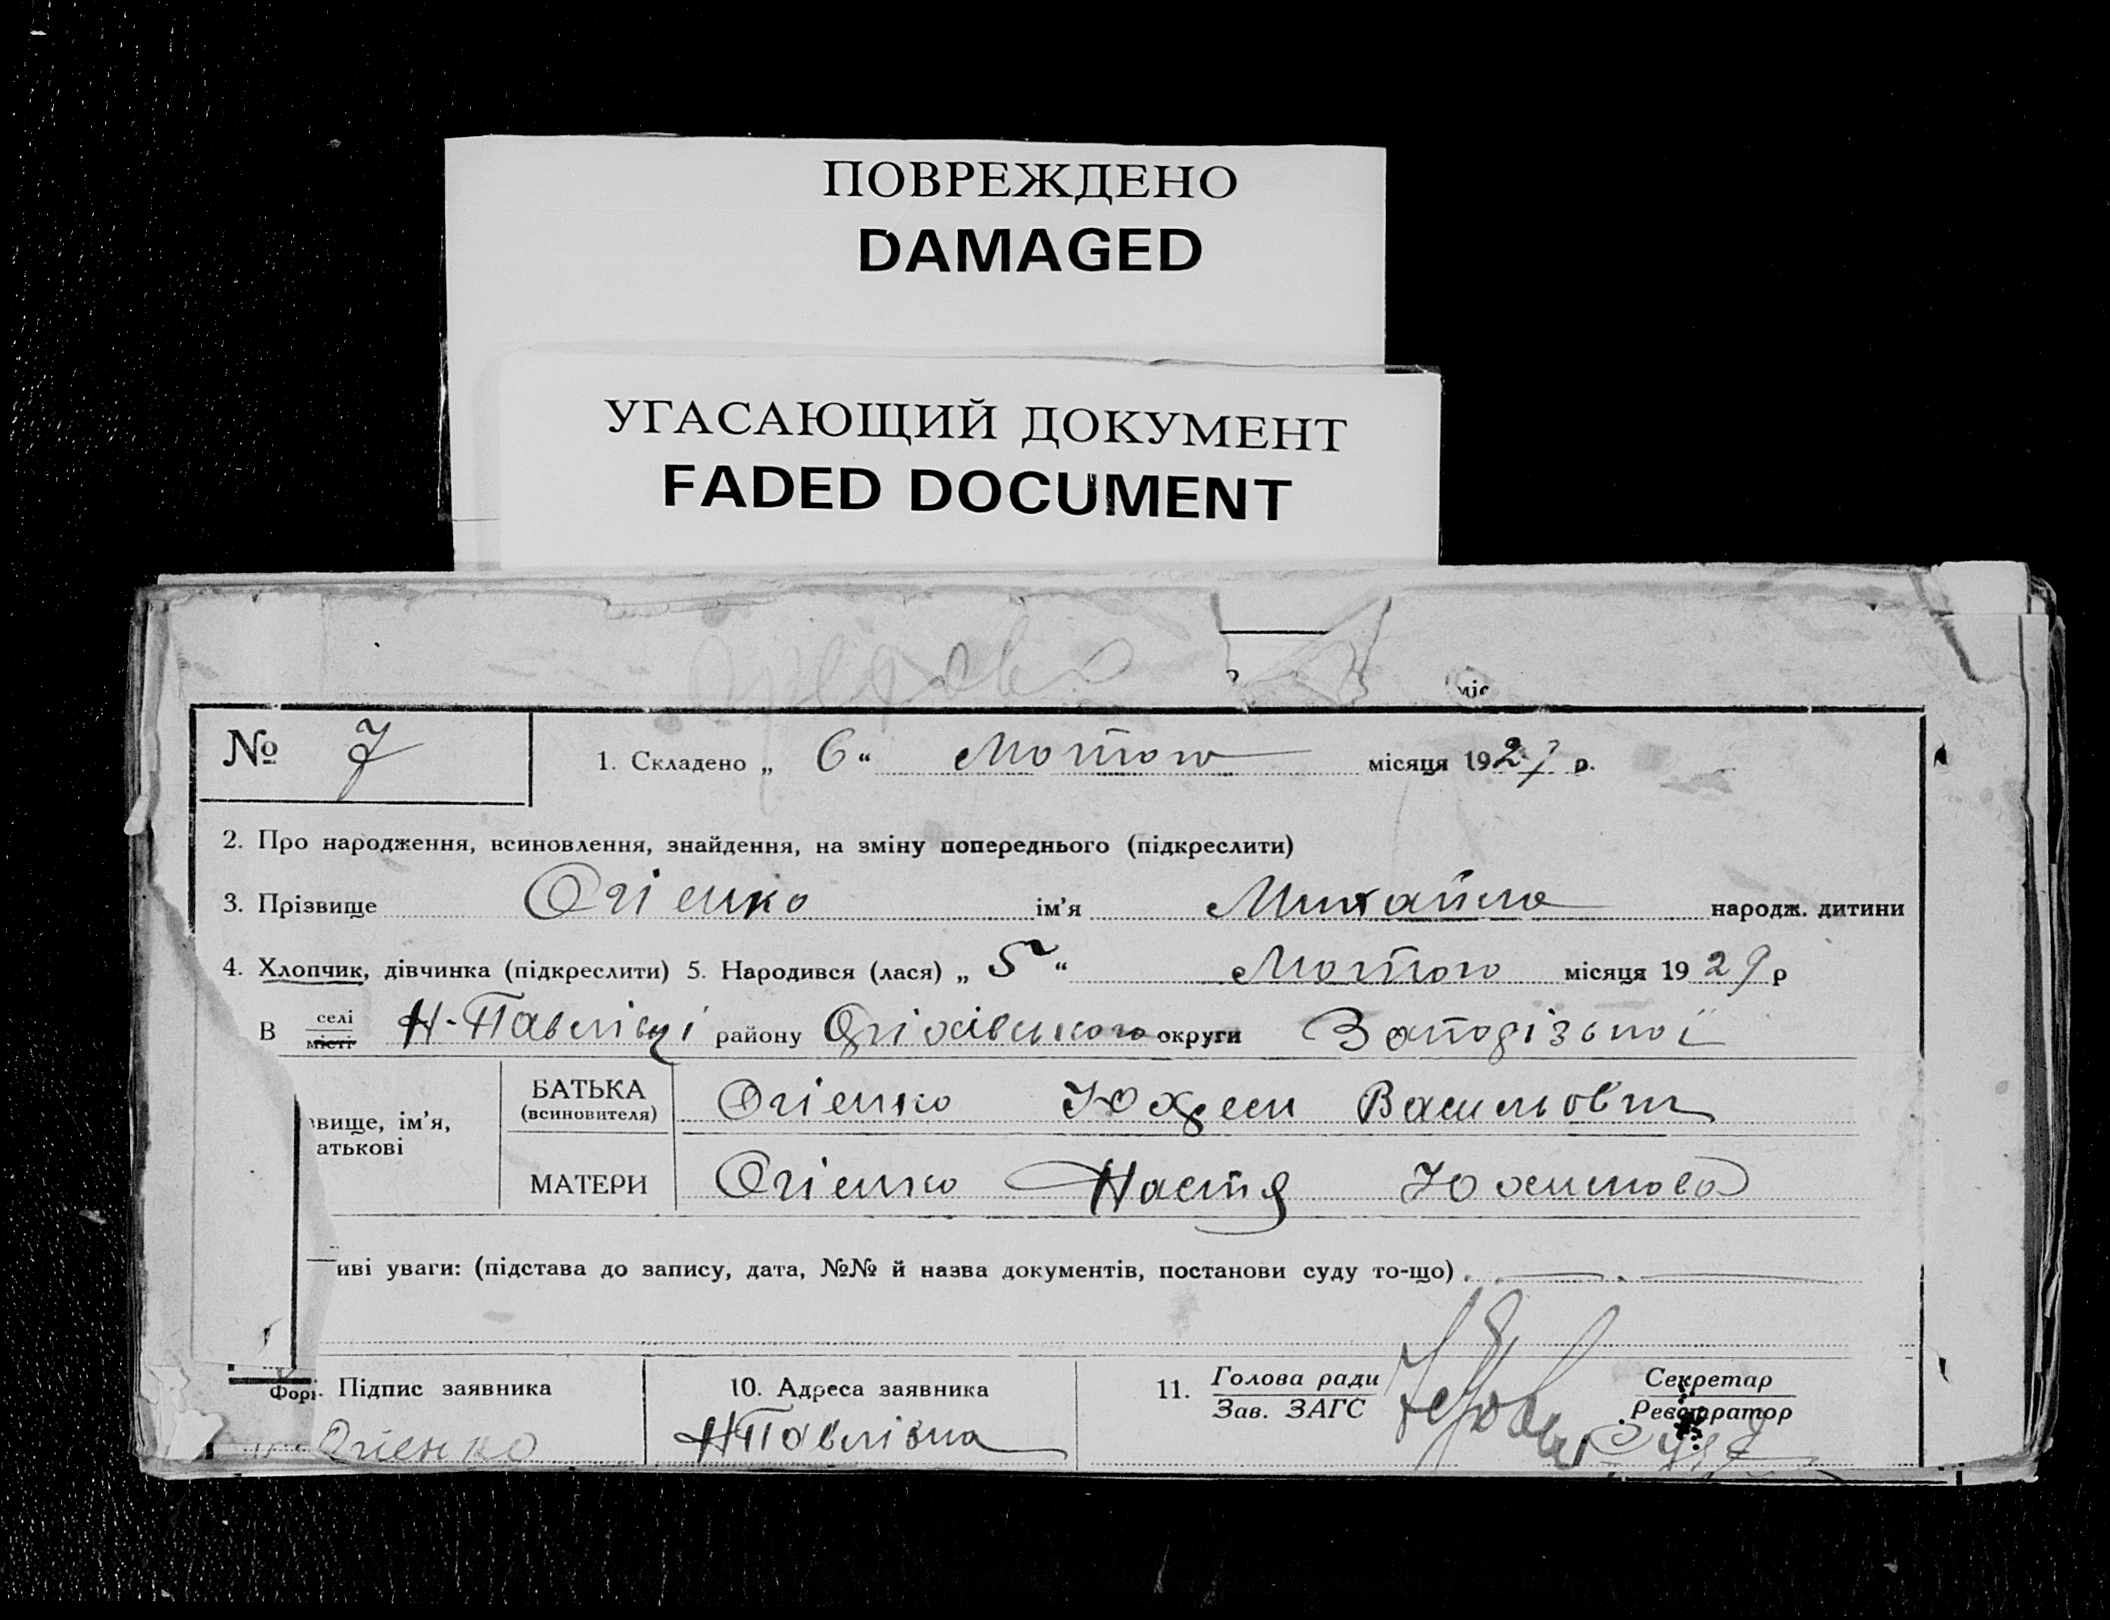 ПОВРЕЖДЕНО
DAMAGED
УГАСАЮЩИЙ ДОКУМЕНТ
FADED DOCUMENT
міс
№ 7 1. Складено „ 6 “ Лютого місяця 1929 р.
2. Про народження, всиновлення, знайдення, на зміну попереднього (підкреслити)
3. Прізвище Огієнко ім’я Михайло народж. дитини
4. Хлопчик, дівчинка (підкреслити) 5. Народився (лася) „ 5 “ Лютого місяця 1929 р
В селі
місті Н-Павлівці району Оріхівського округи Запорізької
БАТЬКА
(всиновителя) Огієнко Юхрем Васильович
звище, ім’я,
атькові
МАТЕРИ Огієнко Настя Юхимова
иві уваги: (підстава до запису, дата, №№ й назва документів, постанови суду то-що)
Форм. Підпис заявника 10. Адреса заявника 11. Голова ради
Зав. ЗАГС Секретар
Реєстратор
Огієнко НПавлівка